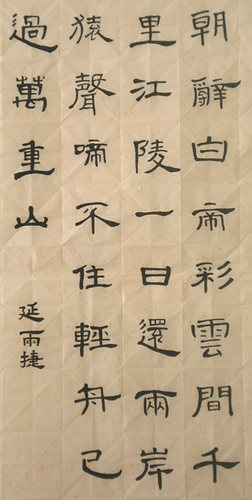 朝辭白帝彩雲間千
里江陵一日還兩岸
猿聲啼不住輕舟已
過萬重山
延雨捷